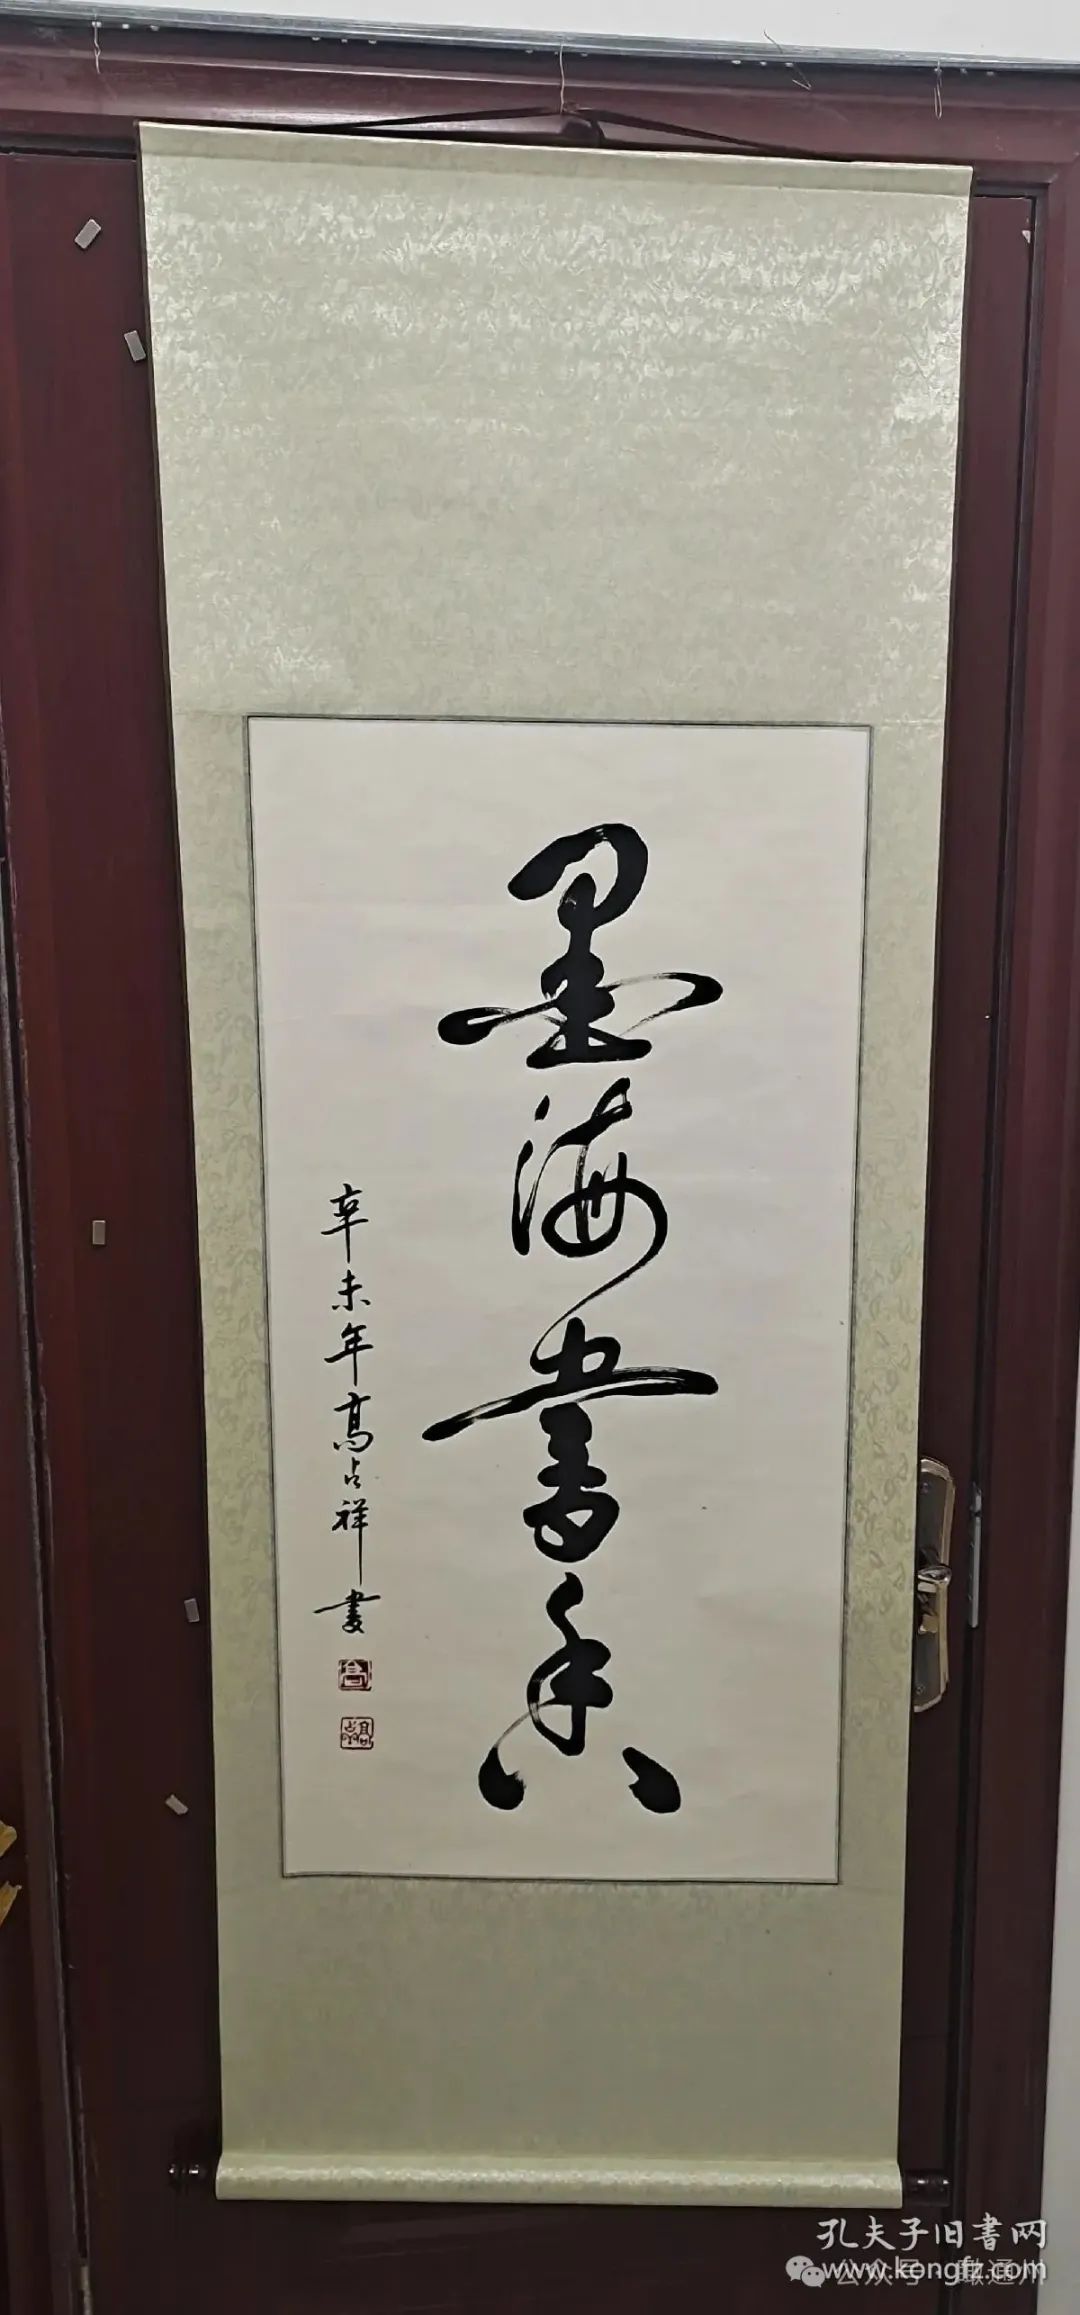 墨海書香
辛未年高占祥書
孔夫子旧書网
www.kongfz.com
公众号·瞰通州